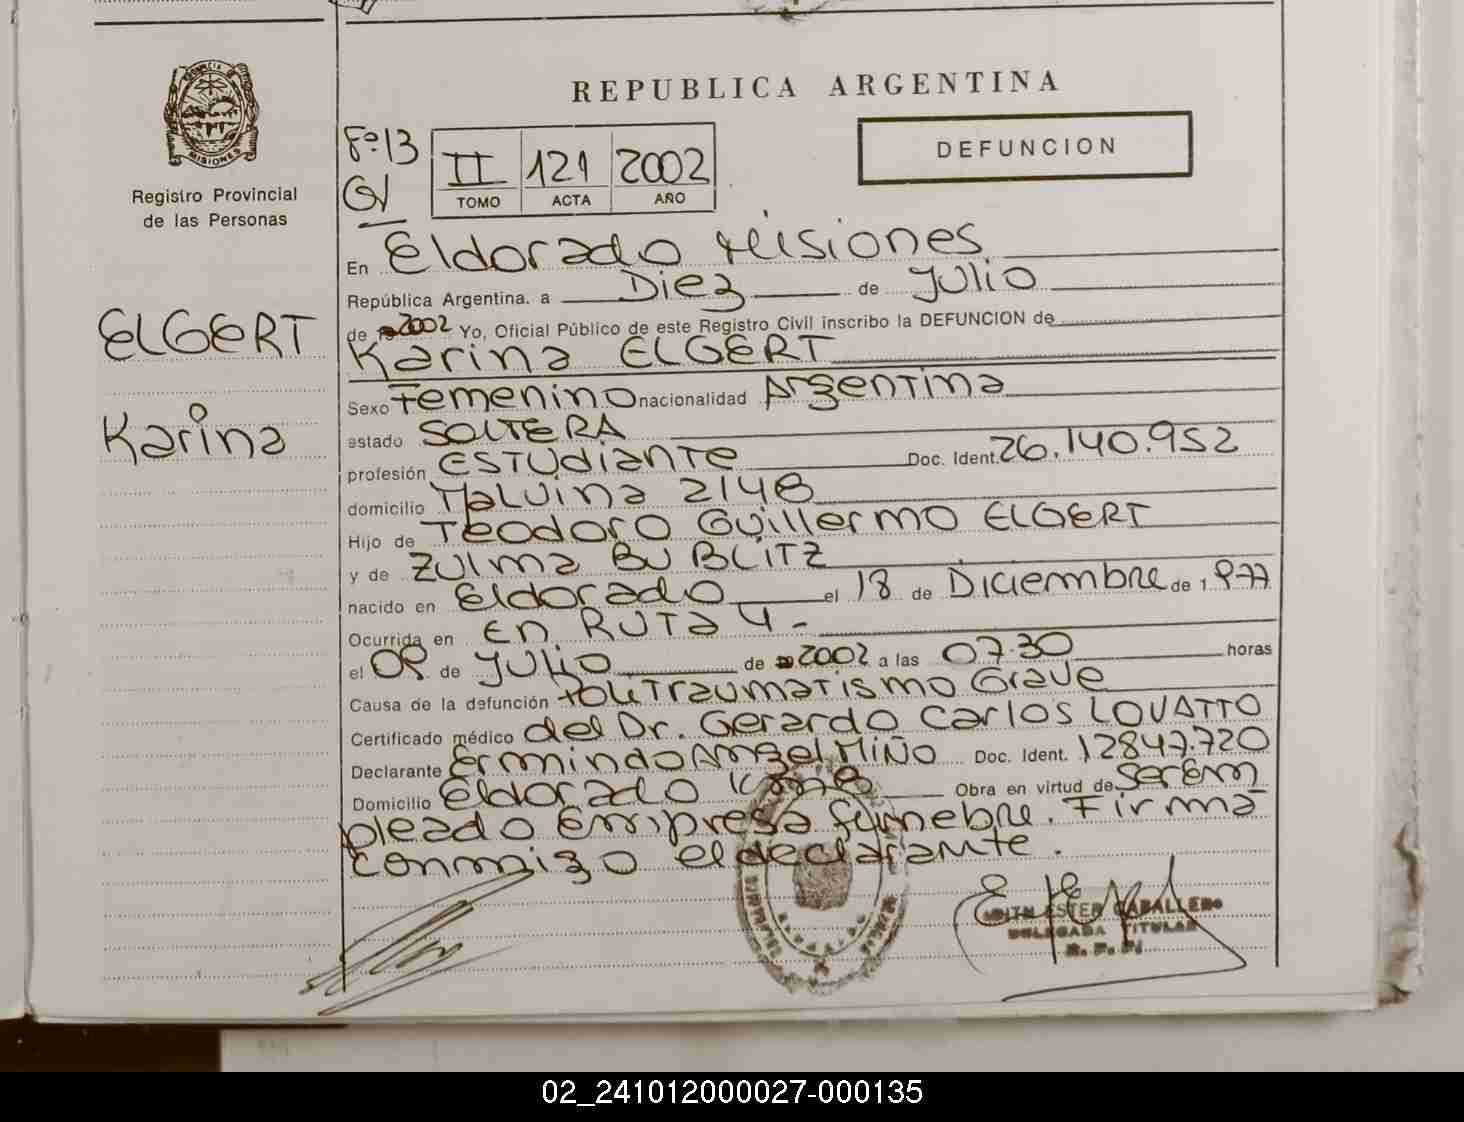 REPUBLICA ARGENTINA
PROVINCIA DE MISIONES
Registro Provincial
de las Personas
Fº 13
II 121 2002
TOMO ACTA AÑO
DEFUNCION
ELGERT
Karina
En Eldorado Misiones
República Argentina. a Diez de Julio
de 2002 Yo, Oficial Público de este Registro Civil inscribo la DEFUNCION de
Karina ELGERT
Sexo Femenino nacionalidad Argentina
estado SOLTERA
profesión ESTUdiante Doc. Ident. 26.140.952
domicilio Malvina 2148
Hijo de Teodoro Guillermo ELGERT
y de Zulma BUBLITZ
nacido en Eldorado el 18 de Diciembre de 1.977
Ocurrida en En RUTA 4.-
el 09 de Julio de 2002 a las 07.30 horas
Causa de la defunción Politraumatismo Grave
Certificado médico del Dr. Gerardo Carlos LOVATTO
Declarante Ermindo Angel MIÑO Doc. Ident. 12847.720
Domicilio Eldorado Km 8 Obra en virtud de ser em
pleado empresa funebre. Firma
conmigo el declarante.
EDITH ESTER CABALLERO
DELEGADA TITULAR
R. P. P.
02_241012000027-000135